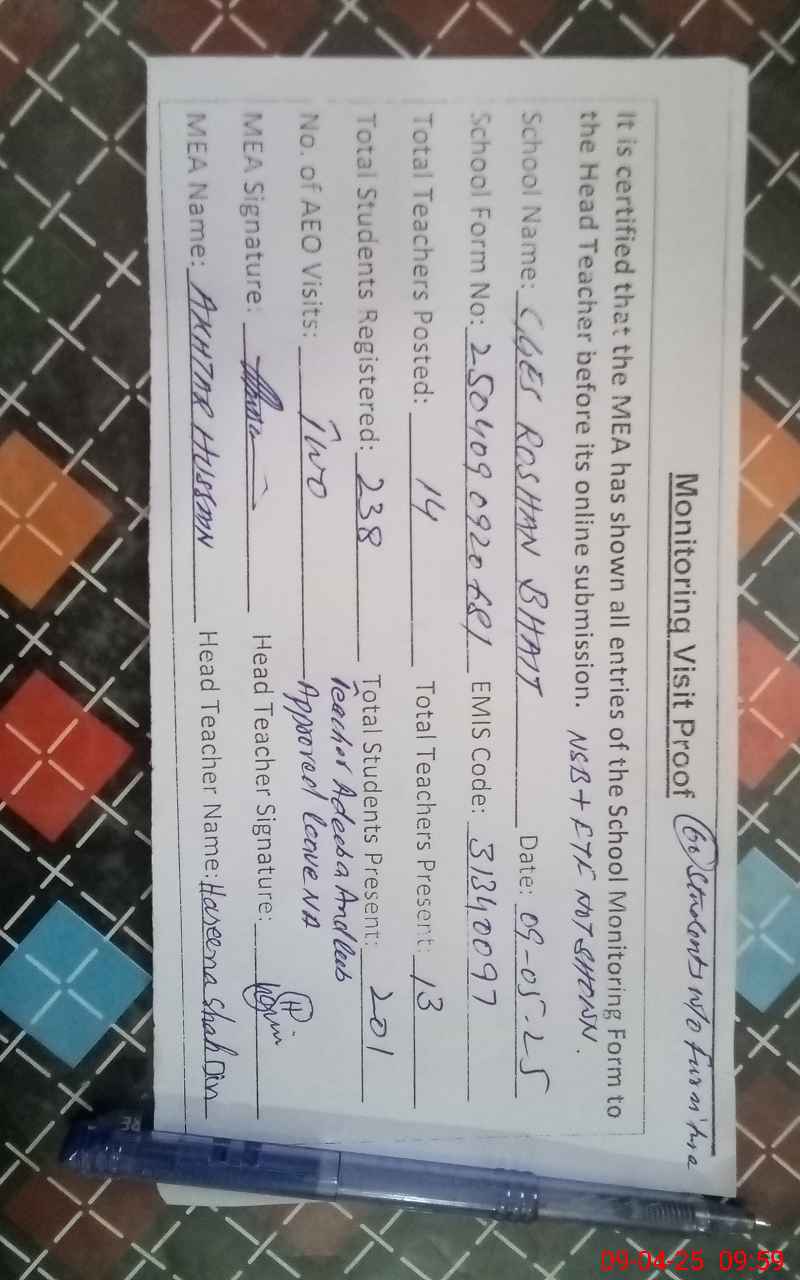 Monitoring Visit Proof (60) students w/o furniture
It is certified that the MEA has shown all entries of the School Monitoring Form to
the Head Teacher before its online submission. NSB + FTF NOT SHOWN.
School Name: GGES ROSHAN BHATT Date: 09-05-25
School Form No: 2504090920 EMIS Code: 31340097
Total Teachers Posted: 14 Total Teachers Present: 13
Total Students Registered: 238 Total Students Present: 201
Teacher Adeeba Andleeb
No. of AEO Visits: Two Approved leave NA
MEA Signature: Head Teacher Signature:
MEA Name: AKHTAR HUSSAIN Head Teacher Name: Haseena Shah Din
09-04-25 09:59